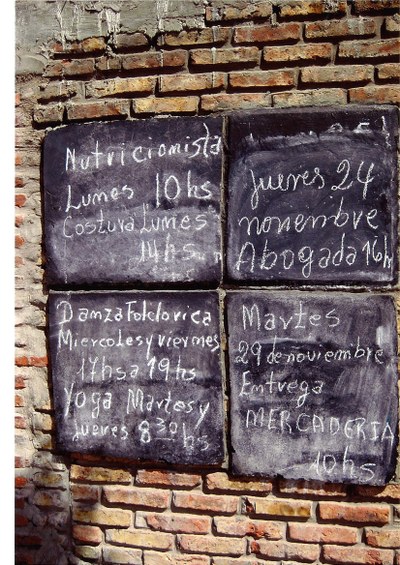 Nutricionista
Lunes 10hs
Costura Lunes
14hs
Jueves 24
noviembre
Abogada 16h
Danza Folclorica
Miercoles y viernes
17hs a 19hs
Yoga Martes y
Jueves 8 30 hs
Martes
29 de noviembre
Entrega
MERCADERIA
10hs